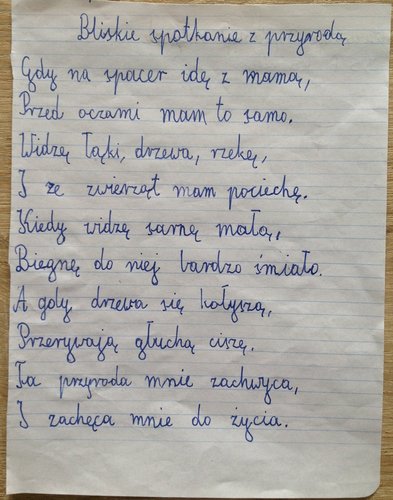 Bliskie spotkanie z przyrodą
Gdy na spacer idę z mamą,
Przed oczami mam to samo.
Widzę łąki, drzewa, rzekę,
I ze zwierząt mam pociechę.
Kiedy widzę sarnę małą,
Biegnę do niej bardzo śmiało.
A gdy drzewa się kołyszą,
Przerywają głuchą ciszę.
Ta przyroda mnie zachwyca,
I zachęca mnie do życia.